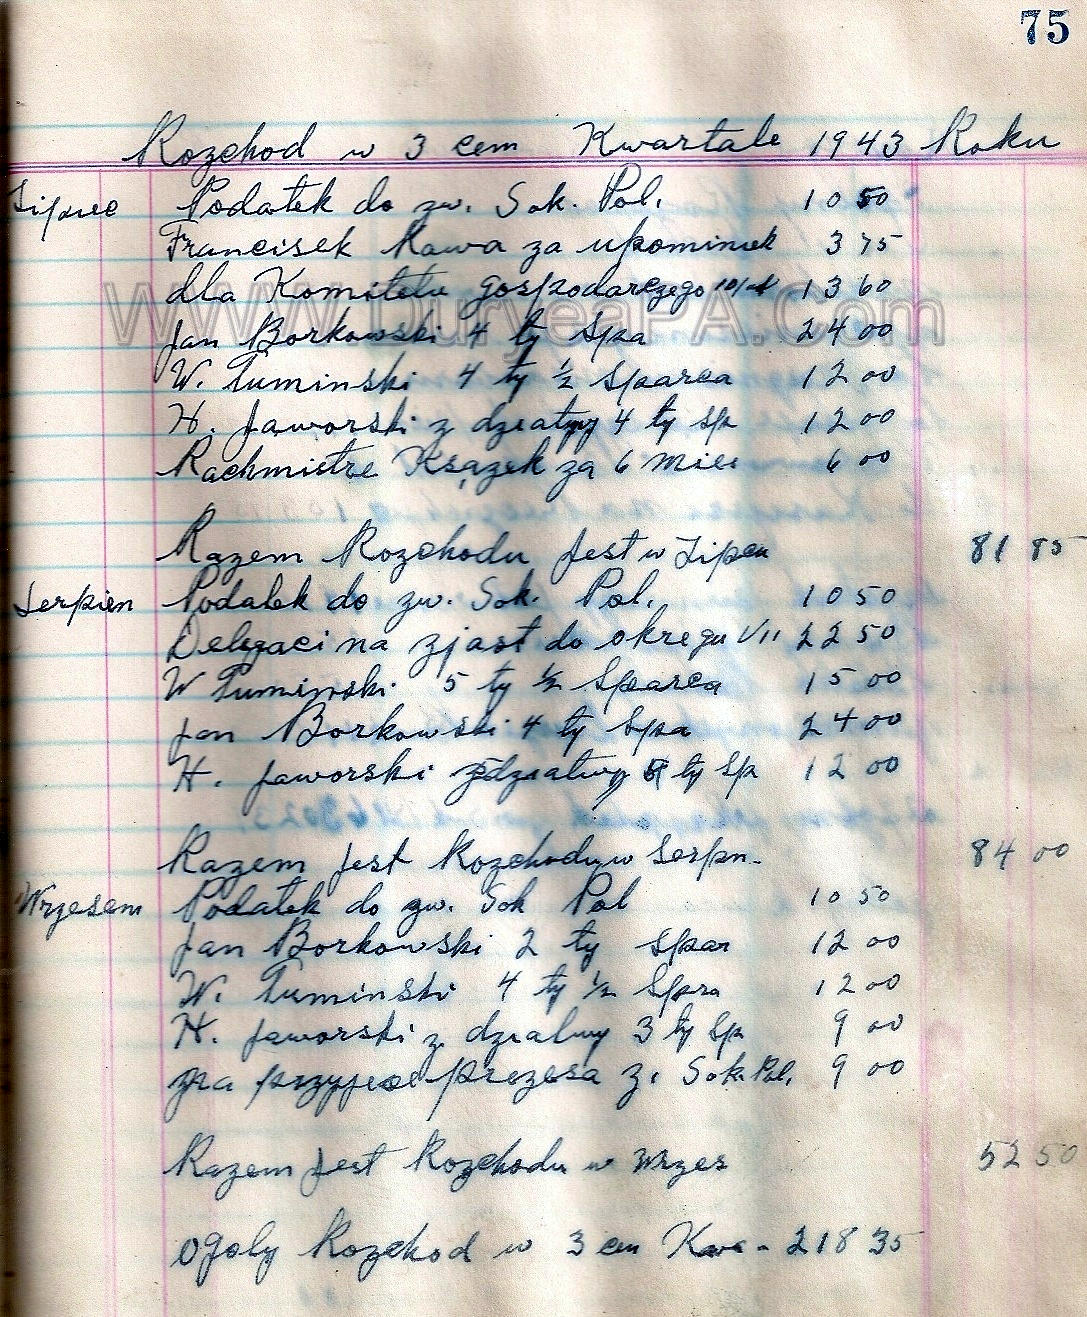 75
Rozchod w 3 cem Kwartale 1943 Roku
Lipiec Podatek do zw. Sok. Pol. 10 50
Francisek Kawa za upominek 3 75
dla Komitetu gospodarczego 13 60
www.DuryeaPA.com
Jan Borkowski 4 ty Spa 24 00
W. Tuminski 4 ty ½ Sparca 12 00
H. Jaworski z dziatwy 4 ty sp 12 00
Rachmistrz Ksązek za 6 mies 6 00
Razem Rozchodu Jest w Lipcu 81 85
Serpien Podatek do zw. Sok. Pol. 10 50
Delegaci na zjast do okregu VII 22 50
W Tuminski. 5 ty ½ Sparca 15 00
Jan Borkowski 4 ty Spa 24 00
H. Jaworski z dziatwy ty Sp 12 00
Razem Jest Rozchodu w Serpn. 84 00
Wrzesem Podatek do zw. Sok Pol 10 50
Jan Borkowski 2 ty Spar 12 00
W. Tuminski 4 ty ½ Spra 12 00
H. Jaworski z dziatwy 3 ty Sp 9 00
na przyjecie prezesa z. Sok. Pol. 9 00
Razem Jest Rozchodu w Wrzes 52 50
ogoly Rozchod w 3 cm Kwa - 218 35